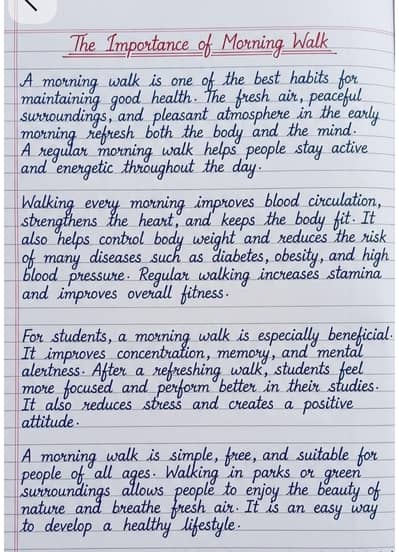 The Importance of Morning Walk
A morning walk is one of the best habits for
maintaining good health. The fresh air, peaceful
surroundings, and pleasant atmosphere in the early
morning refresh both the body and the mind.
A regular morning walk helps people stay active
and energetic throughout the day.
Walking every morning improves blood circulation,
strengthens the heart, and keeps the body fit. It
also helps control body weight and reduces the risk
of many diseases such as diabetes, obesity, and high
blood pressure. Regular walking increases stamina
and improves overall fitness.
For students, a morning walk is especially beneficial.
It improves concentration, memory, and mental
alertness. After a refreshing walk, students feel
more focused and perform better in their studies.
It also reduces stress and creates a positive
attitude.
A morning walk is simple, free, and suitable for
people of all ages. Walking in parks or green
surroundings allows people to enjoy the beauty of
nature and breathe fresh air. It is an easy way
to develop a healthy lifestyle.